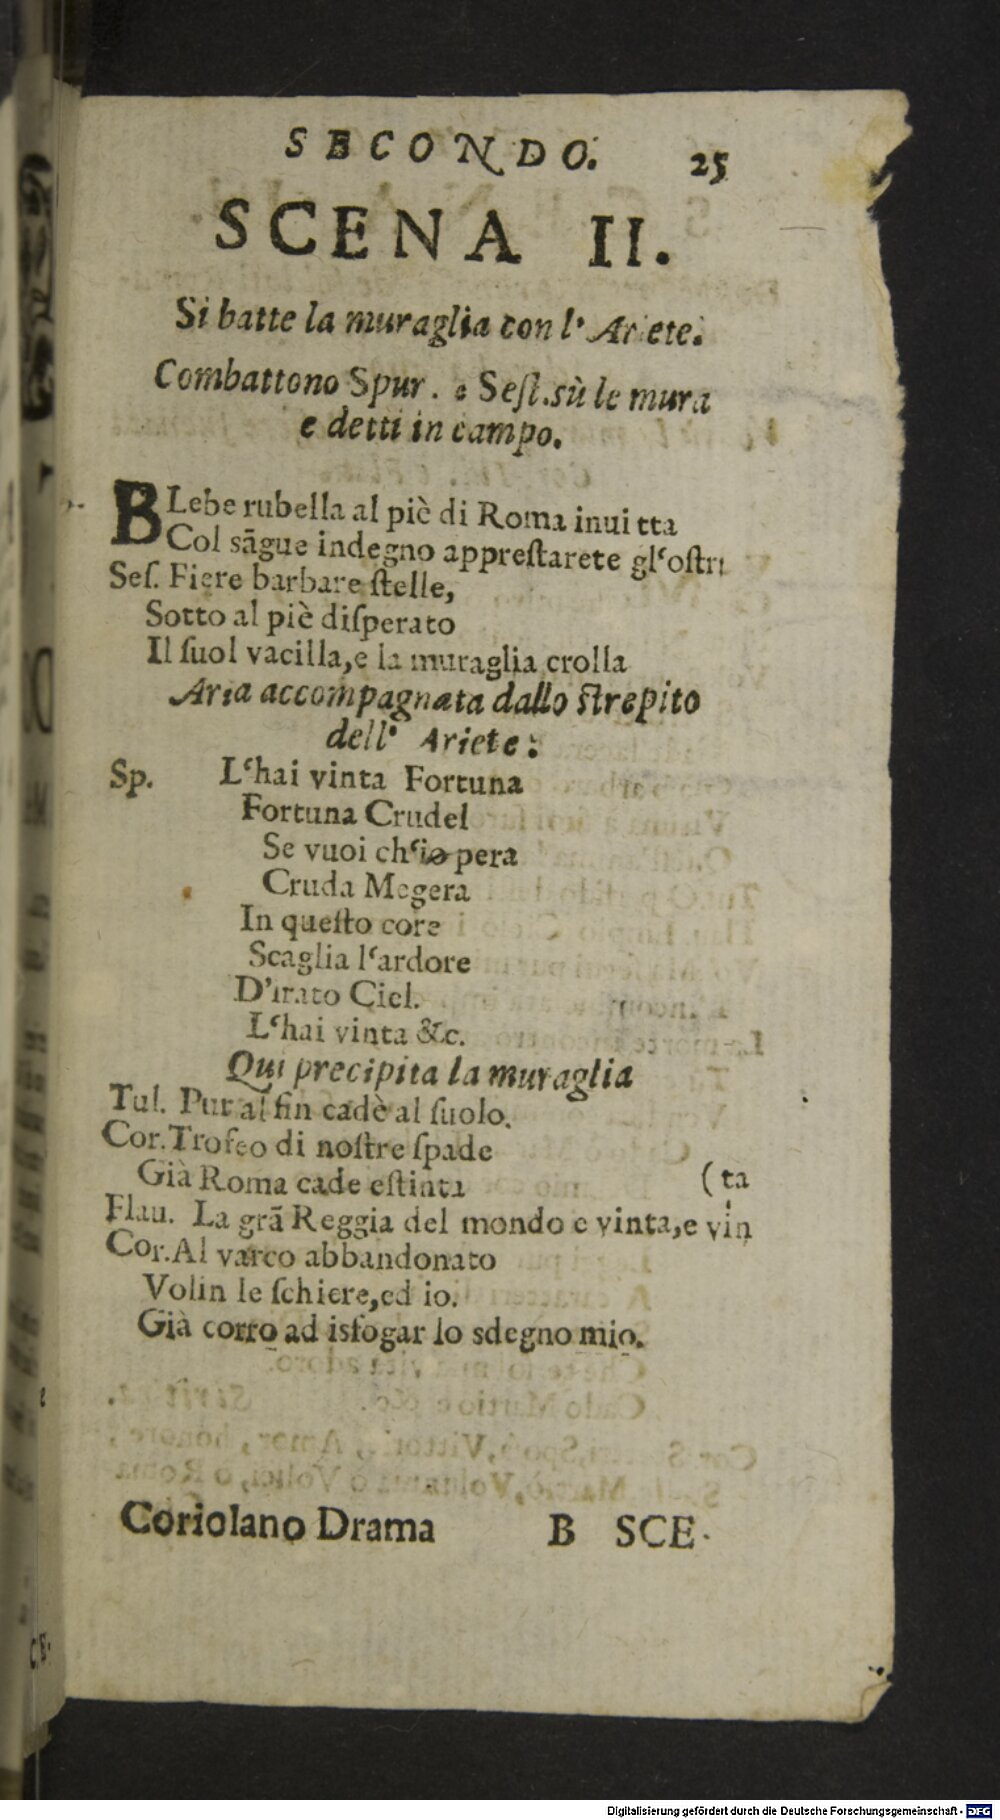 SECONDO. 25
SCENA II.
Si batte la muraglia con l' Ariete.
Combattono Spur. e Seſt. sù le mura
e detti in campo.
BLebe rubella al piè di Roma inui tta
Col sãgue indegno appreſtarete glʻoſtri
Seſ. Fiere barbare ſtelle,
Sotto al piè diſperato
Il ſuol vacilla,e la muraglia crolla
Aria accompagnata dallo ſtrepito
dell' Ariete:
Sp. Lʻhai vinta Fortuna
Fortuna Crudel
Se vuoi chʻio pera
Cruda Megera
In queſto core
Scaglia lʻardore
D'irato Ciel.
Lʻhai vinta &c.
Qui precipita la muraglia
Tul. Pur al fin cadè al ſuolo.
Cor. Trofeo di noſtre ſpade
Già Roma cade eſtinta (ta
Flau. La grã Reggia del mondo e vinta,e vin
Cor. Al varco abbandonato
Volin le ſchiere,ed io.
Già corro ad isfogar lo sdegno mio.
Coriolano Drama B SCE-
Digitalisierung gefördert durch die Deutsche Forschungsgemeinschaft - DFG